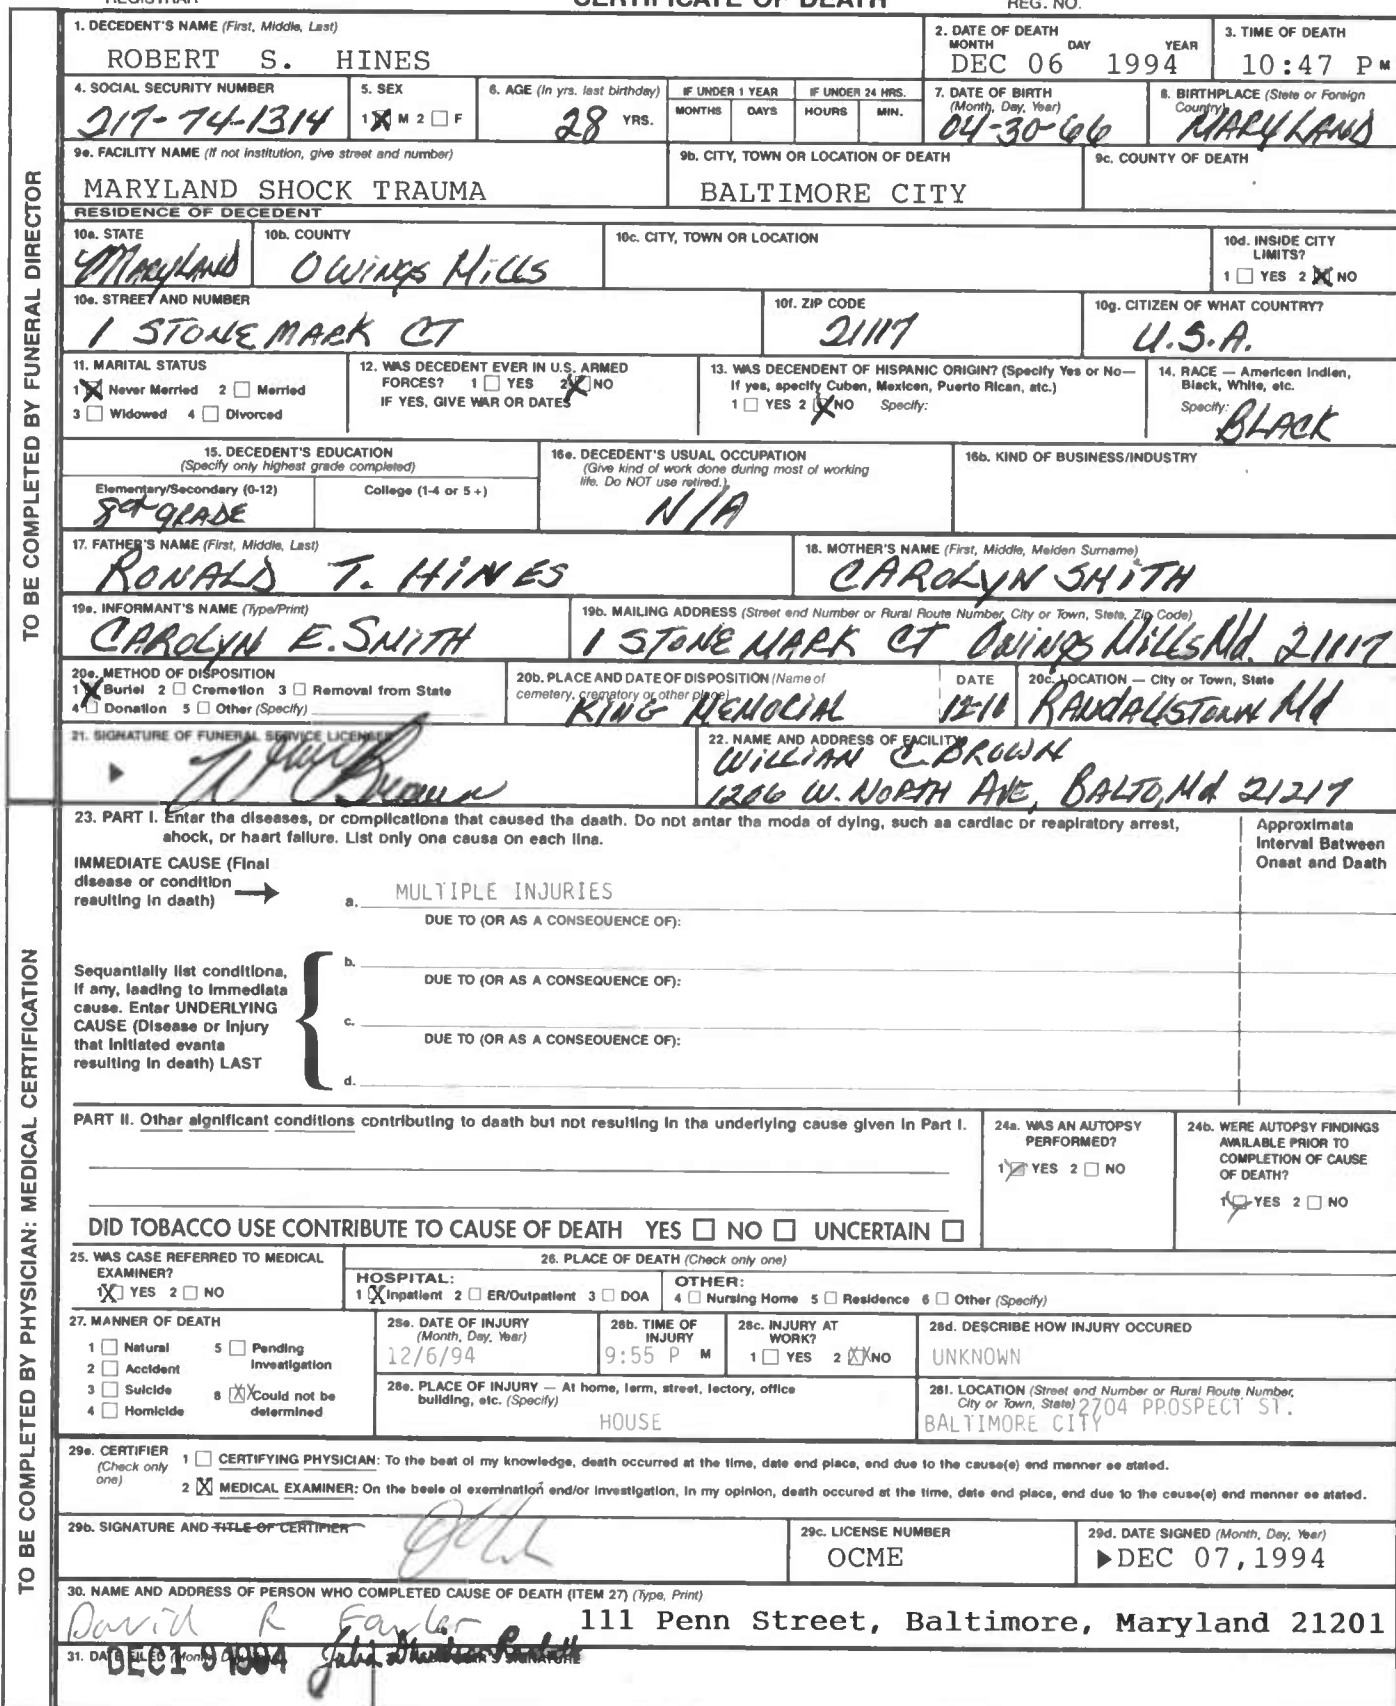 CERTIFICATE OF DEATH
REGISTRAR
REG. NO.
1. DECEDENT'S NAME (First, Middle, Last)
ROBERT S. HINES
2. DATE OF DEATH
MONTH DAY YEAR
DEC 06 1994
3. TIME OF DEATH
10:47 P M
4. SOCIAL SECURITY NUMBER
217-74-1314
5. SEX
1 X M 2 ☐ F
6. AGE (In yrs. last birthday)
28 YRS.
IF UNDER 1 YEAR
MONTHS DAYS
IF UNDER 24 HRS.
HOURS MIN.
7. DATE OF BIRTH
(Month, Day, Year)
04-30-66
8. BIRTHPLACE (State or Foreign
Country)
MARYLAND
9a. FACILITY NAME (If not institution, give street and number)
MARYLAND SHOCK TRAUMA
9b. CITY, TOWN OR LOCATION OF DEATH
BALTIMORE CITY
9c. COUNTY OF DEATH
TO BE COMPLETED BY FUNERAL DIRECTOR
RESIDENCE OF DECEDENT
10a. STATE
MARYLAND
10b. COUNTY
OWINGS MILLS
10c. CITY, TOWN OR LOCATION
10d. INSIDE CITY
LIMITS?
1 ☐ YES 2 X NO
10e. STREET AND NUMBER
1 STONE MARK CT
10f. ZIP CODE
21117
10g. CITIZEN OF WHAT COUNTRY?
U.S.A.
11. MARITAL STATUS
1 X Never Married 2 ☐ Married
3 ☐ Widowed 4 ☐ Divorced
12. WAS DECEDENT EVER IN U.S. ARMED
FORCES? 1 ☐ YES 2 X NO
IF YES, GIVE WAR OR DATES
13. WAS DECENDENT OF HISPANIC ORIGIN? (Specify Yes or No—
If yes, specify Cuban, Mexican, Puerto Rican, etc.)
1 ☐ YES 2 X NO Specify:
14. RACE — American Indian,
Black, White, etc.
Specify:
BLACK
15. DECEDENT'S EDUCATION
(Specify only highest grade completed)
Elementary/Secondary (0-12)
College (1-4 or 5+)
8th GRADE
16a. DECEDENT'S USUAL OCCUPATION
(Give kind of work done during most of working
life. Do NOT use retired.)
N/A
16b. KIND OF BUSINESS/INDUSTRY
17. FATHER'S NAME (First, Middle, Last)
RONALD T. HINES
18. MOTHER'S NAME (First, Middle, Maiden Surname)
CAROLYN SMITH
19a. INFORMANT'S NAME (Type/Print)
CAROLYN E. SMITH
19b. MAILING ADDRESS (Street and Number or Rural Route Number, City or Town, State, Zip Code)
1 STONE MARK CT OWINGS MILLS Md. 21117
20a. METHOD OF DISPOSITION
1 X Burial 2 ☐ Cremation 3 ☐ Removal from State
4 ☐ Donation 5 ☐ Other (Specify)
20b. PLACE AND DATE OF DISPOSITION (Name of
cemetery, crematory or other place)
KING MEMORIAL
DATE
12-10
20c. LOCATION — City or Town, State
RANDALLSTOWN Md
21. SIGNATURE OF FUNERAL SERVICE LICENSEE
Brown
22. NAME AND ADDRESS OF FACILITY
WILLIAN C. BROWN
1206 W. NORTH AVE, BALTO, Md 21217
TO BE COMPLETED BY PHYSICIAN: MEDICAL CERTIFICATION
23. PART I. Enter the diseases, or complications that caused the death. Do not enter the mode of dying, such as cardiac or respiratory arrest,
shock, or heart failure. List only one cause on each line.
Approximate
Interval Between
Onset and Death
IMMEDIATE CAUSE (Final
disease or condition
resulting in death) →
a. MULTIPLE INJURIES
DUE TO (OR AS A CONSEQUENCE OF):
Sequentially list conditions,
if any, leading to immediate
cause. Enter UNDERLYING
CAUSE (Disease or injury
that initiated events
resulting in death) LAST
b.
DUE TO (OR AS A CONSEQUENCE OF):
c.
DUE TO (OR AS A CONSEQUENCE OF):
d.
PART II. Other significant conditions contributing to death but not resulting in the underlying cause given in Part I.
24a. WAS AN AUTOPSY
PERFORMED?
1 X YES 2 ☐ NO
24b. WERE AUTOPSY FINDINGS
AVAILABLE PRIOR TO
COMPLETION OF CAUSE
OF DEATH?
1 X YES 2 ☐ NO
DID TOBACCO USE CONTRIBUTE TO CAUSE OF DEATH YES ☐ NO ☐ UNCERTAIN ☐
25. WAS CASE REFERRED TO MEDICAL
EXAMINER?
1 X YES 2 ☐ NO
26. PLACE OF DEATH (Check only one)
HOSPITAL:
1 X Inpatient 2 ☐ ER/Outpatient 3 ☐ DOA
OTHER:
4 ☐ Nursing Home 5 ☐ Residence 6 ☐ Other (Specify)
27. MANNER OF DEATH
1 ☐ Natural 5 ☐ Pending
Investigation
2 ☐ Accident
3 ☐ Suicide 8 XX Could not be
determined
4 ☐ Homicide
28a. DATE OF INJURY
(Month, Day, Year)
12/6/94
28b. TIME OF
INJURY
9:55 P M
28c. INJURY AT
WORK?
1 ☐ YES 2 XX NO
28d. DESCRIBE HOW INJURY OCCURED
UNKNOWN
28e. PLACE OF INJURY — At home, farm, street, factory, office
building, etc. (Specify)
HOUSE
28f. LOCATION (Street and Number or Rural Route Number,
City or Town, State) 2704 PROSPECT ST.
BALTIMORE CITY
29a. CERTIFIER
(Check only
one)
1 ☐ CERTIFYING PHYSICIAN: To the best of my knowledge, death occurred at the time, date and place, and due to the cause(s) and manner as stated.
2 X MEDICAL EXAMINER: On the basis of examination and/or investigation, in my opinion, death occured at the time, date and place, and due to the cause(s) and manner as stated.
29b. SIGNATURE AND TITLE OF CERTIFIER
29c. LICENSE NUMBER
OCME
29d. DATE SIGNED (Month, Day, Year)
▶DEC 07,1994
30. NAME AND ADDRESS OF PERSON WHO COMPLETED CAUSE OF DEATH (ITEM 27) (Type, Print)
David R Fowler 111 Penn Street, Baltimore, Maryland 21201
31. DATE FILED (Month,
DEC 19 1994
SIGNATURE